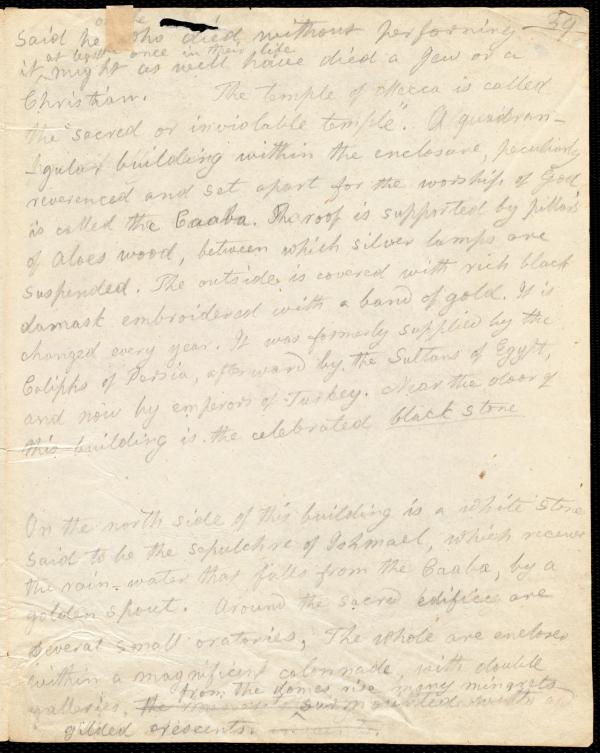 39
said he who died without performing
it, at least once in their life
might as well have died a Jew or a
Christian. The temple of Mecca is called
the "sacred or inviolable temple". A quadran-
gular building within the enclosure, peculiarly
reverenced and set apart for the worship of God
is called the Caaba. The roof is supported by pillars
of Aloes wood, between which silver lamps are
suspended. The outside is covered with rich black
damask embroidered with a band of gold. It is
changed every year. It was formerly supplied by the
Caliphs of Persia, afterward by the Sultans of Egypt,
and now by emperors of Turkey. Near the door of
this building is the celebrated black stone
On the north side of this building is a white stone
said to be the sepulchre of Ishmael, which receives
the rain-water that falls from the Caaba, by a
golden spout. Around the sacred edifice are
several small oratories, The whole are enclosed
within a magnificent colonnade, with double
from the domes rise many minarets
galleries, the surmounted with
gilded crescents.